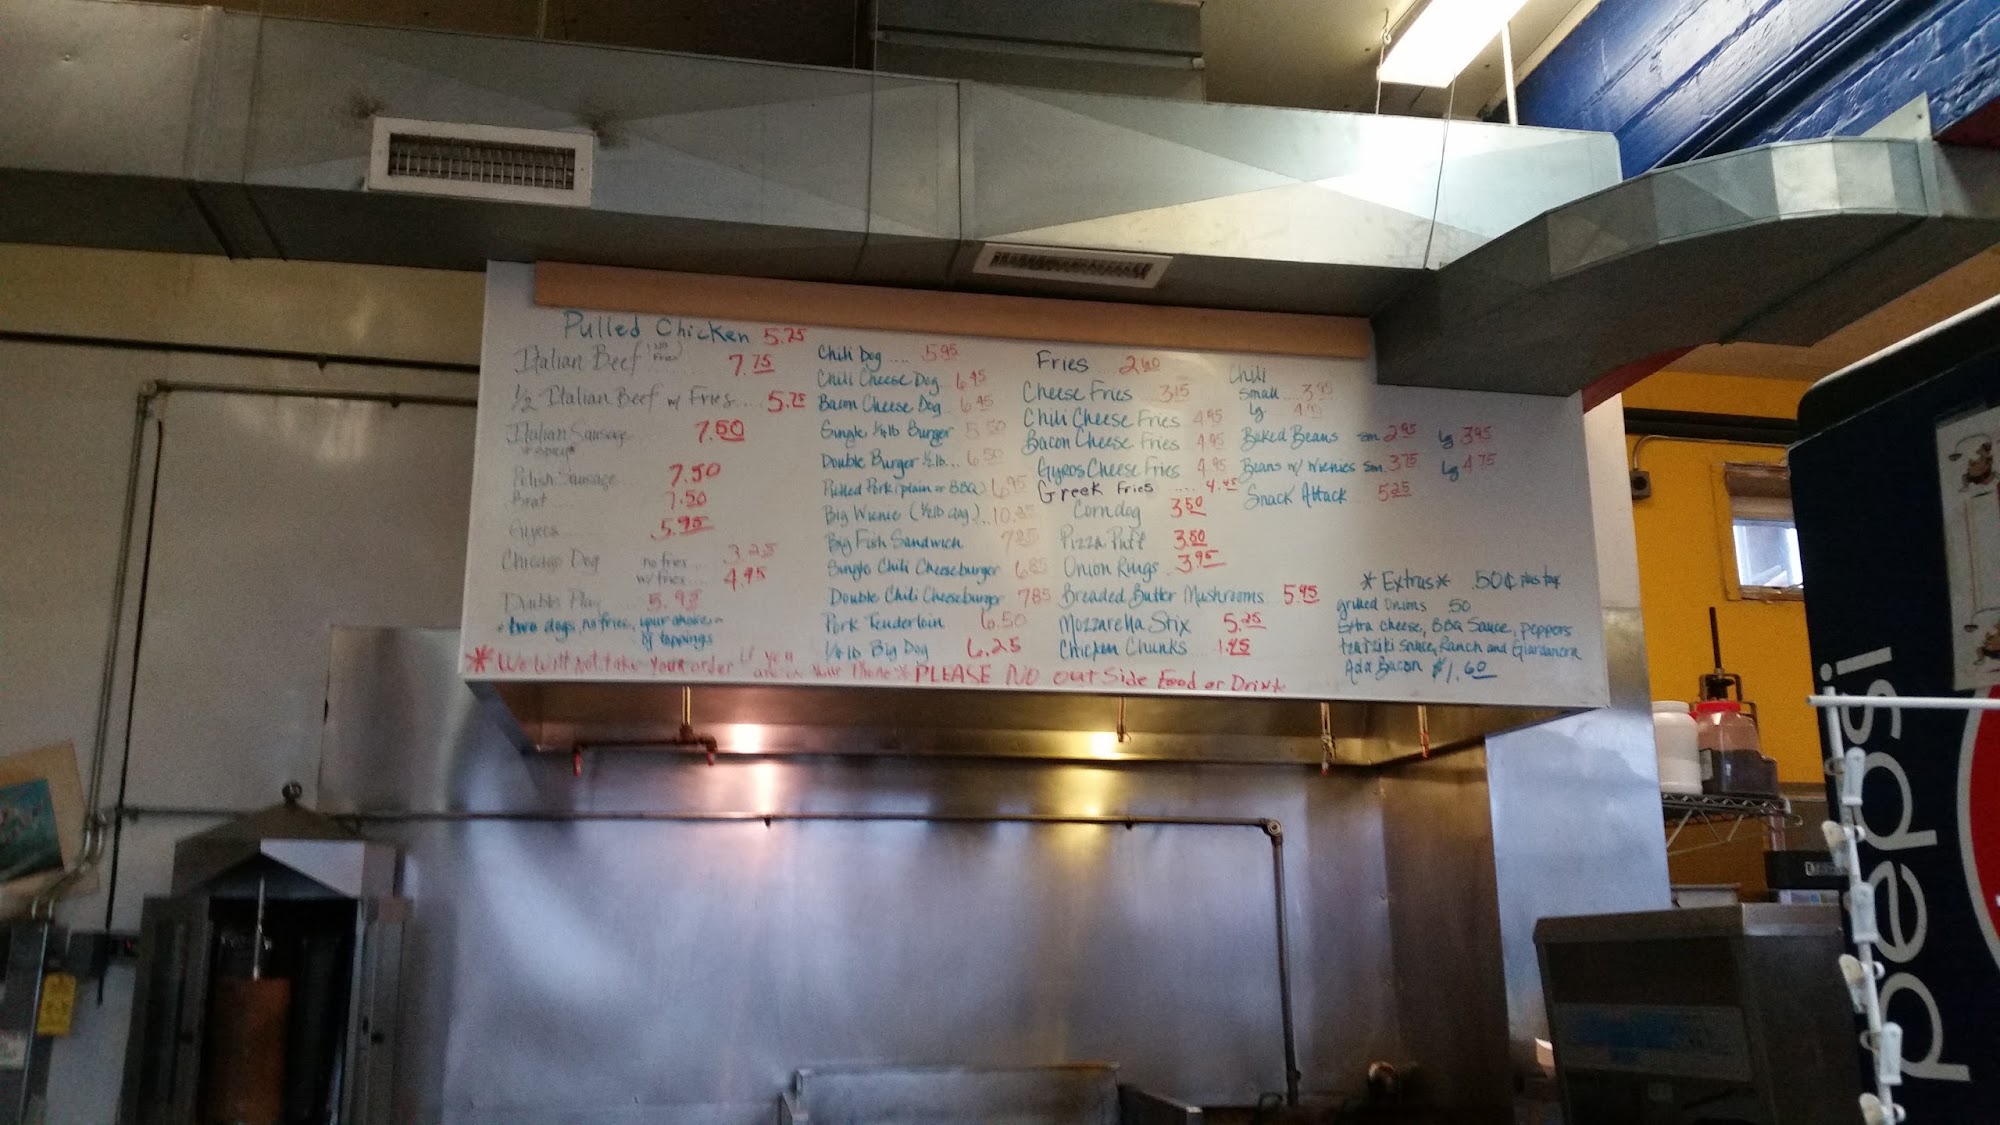 Pulled Chicken 5.25
Italian Beef (No Fries) 7.75
1/2 Italian Beef w/ Fries .... 5.75
Italian Sausage 7.50
Polish Sausage 7.50
Brat 7.50
Gyros 5.95
Chicago Dog no fries ... 3.25
w/ fries ... 4.95
Double Play ... 5.95
two dogs, no fries, your choice
of toppings
Chili Dog .... 5.95
Chili Cheese Dog 6.45
Bacon Cheese Dog 6.45
Single 1/4 lb Burger 5.50
Double Burger 1/2 lb... 6.50
Pulled Pork (plain or BBQ) 6.95
Big Wienie (1/2 lb dog) ..10.25
Big Fish Sandwich 7.25
Single Chili Cheeseburger 6.85
Double Chili Cheeseburger 7.85
Pork Tenderloin 6.50
1/4 lb Big Dog 6.25
Fries ... 2.60
Cheese Fries ... 3.15
Chili Cheese Fries 4.95
Bacon Cheese Fries 4.95
Gyros Cheese Fries 4.95
Greek Fries .... 4.45
Corndog 3.50
Pizza Puff 3.50
Onion Rings 3.95
Breaded Butter Mushrooms 5.95
Mozzarella Stix 5.25
Chicken Chunks
Chili
Small ... 3.95
Lg
Baked Beans sm. 2.95 Lg 3.95
Beans w/ Wienies sm. 3.75 Lg 4.75
Snack Attack 5.25
*Extras* .50¢ plus tax
grilled onions .50
Extra cheese, BBQ Sauce, peppers
tzatziki sauce, Ranch and Giardinera
Add Bacon $1.60
* We will not take your order if you are on your Phone * PLEASE No outside Food or Drink
pepsi